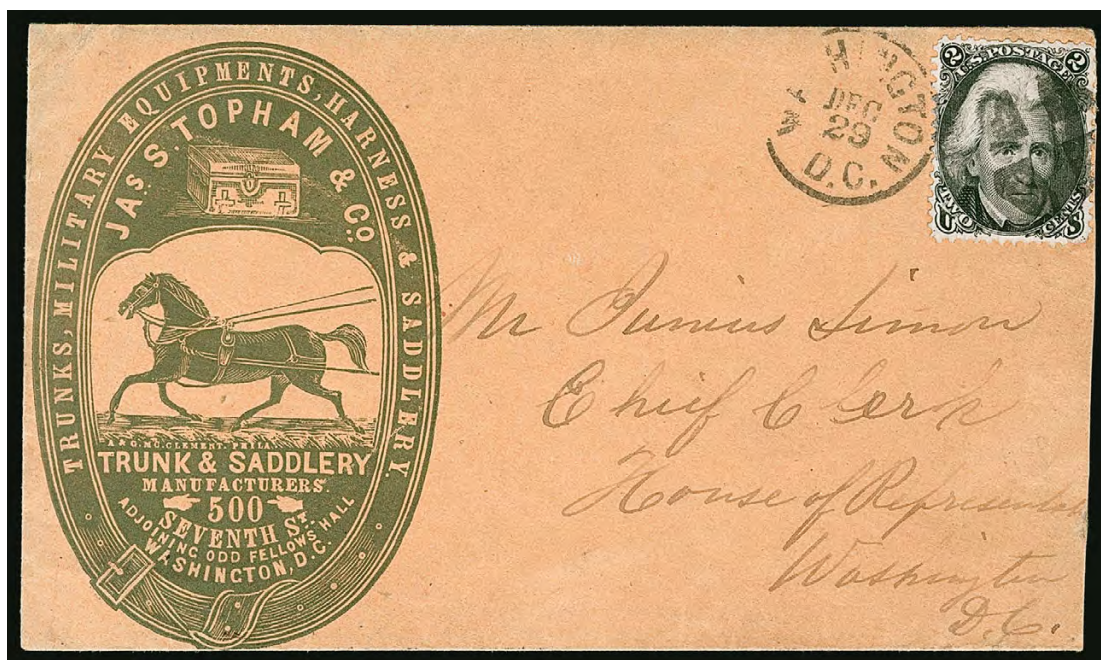 TRUNKS, MILITARY EQUIPMENTS, HARNESS & SADDLERY.
JAS. S. TOPHAM & CO.
A & G. MC. CLEMENT. PHILA.
TRUNK & SADDLERY
MANUFACTURERS.
500
SEVENTH ST.
ADJOINING ODD FELLOWS HALL
WASHINGTON, D.C.
WASHINGTON D.C.
DEC
29
2 U.S. POSTAGE 2
U TWO CENTS S
Mr Junius Simon
Chief Clerk
House of Representa
Washington
D.C.